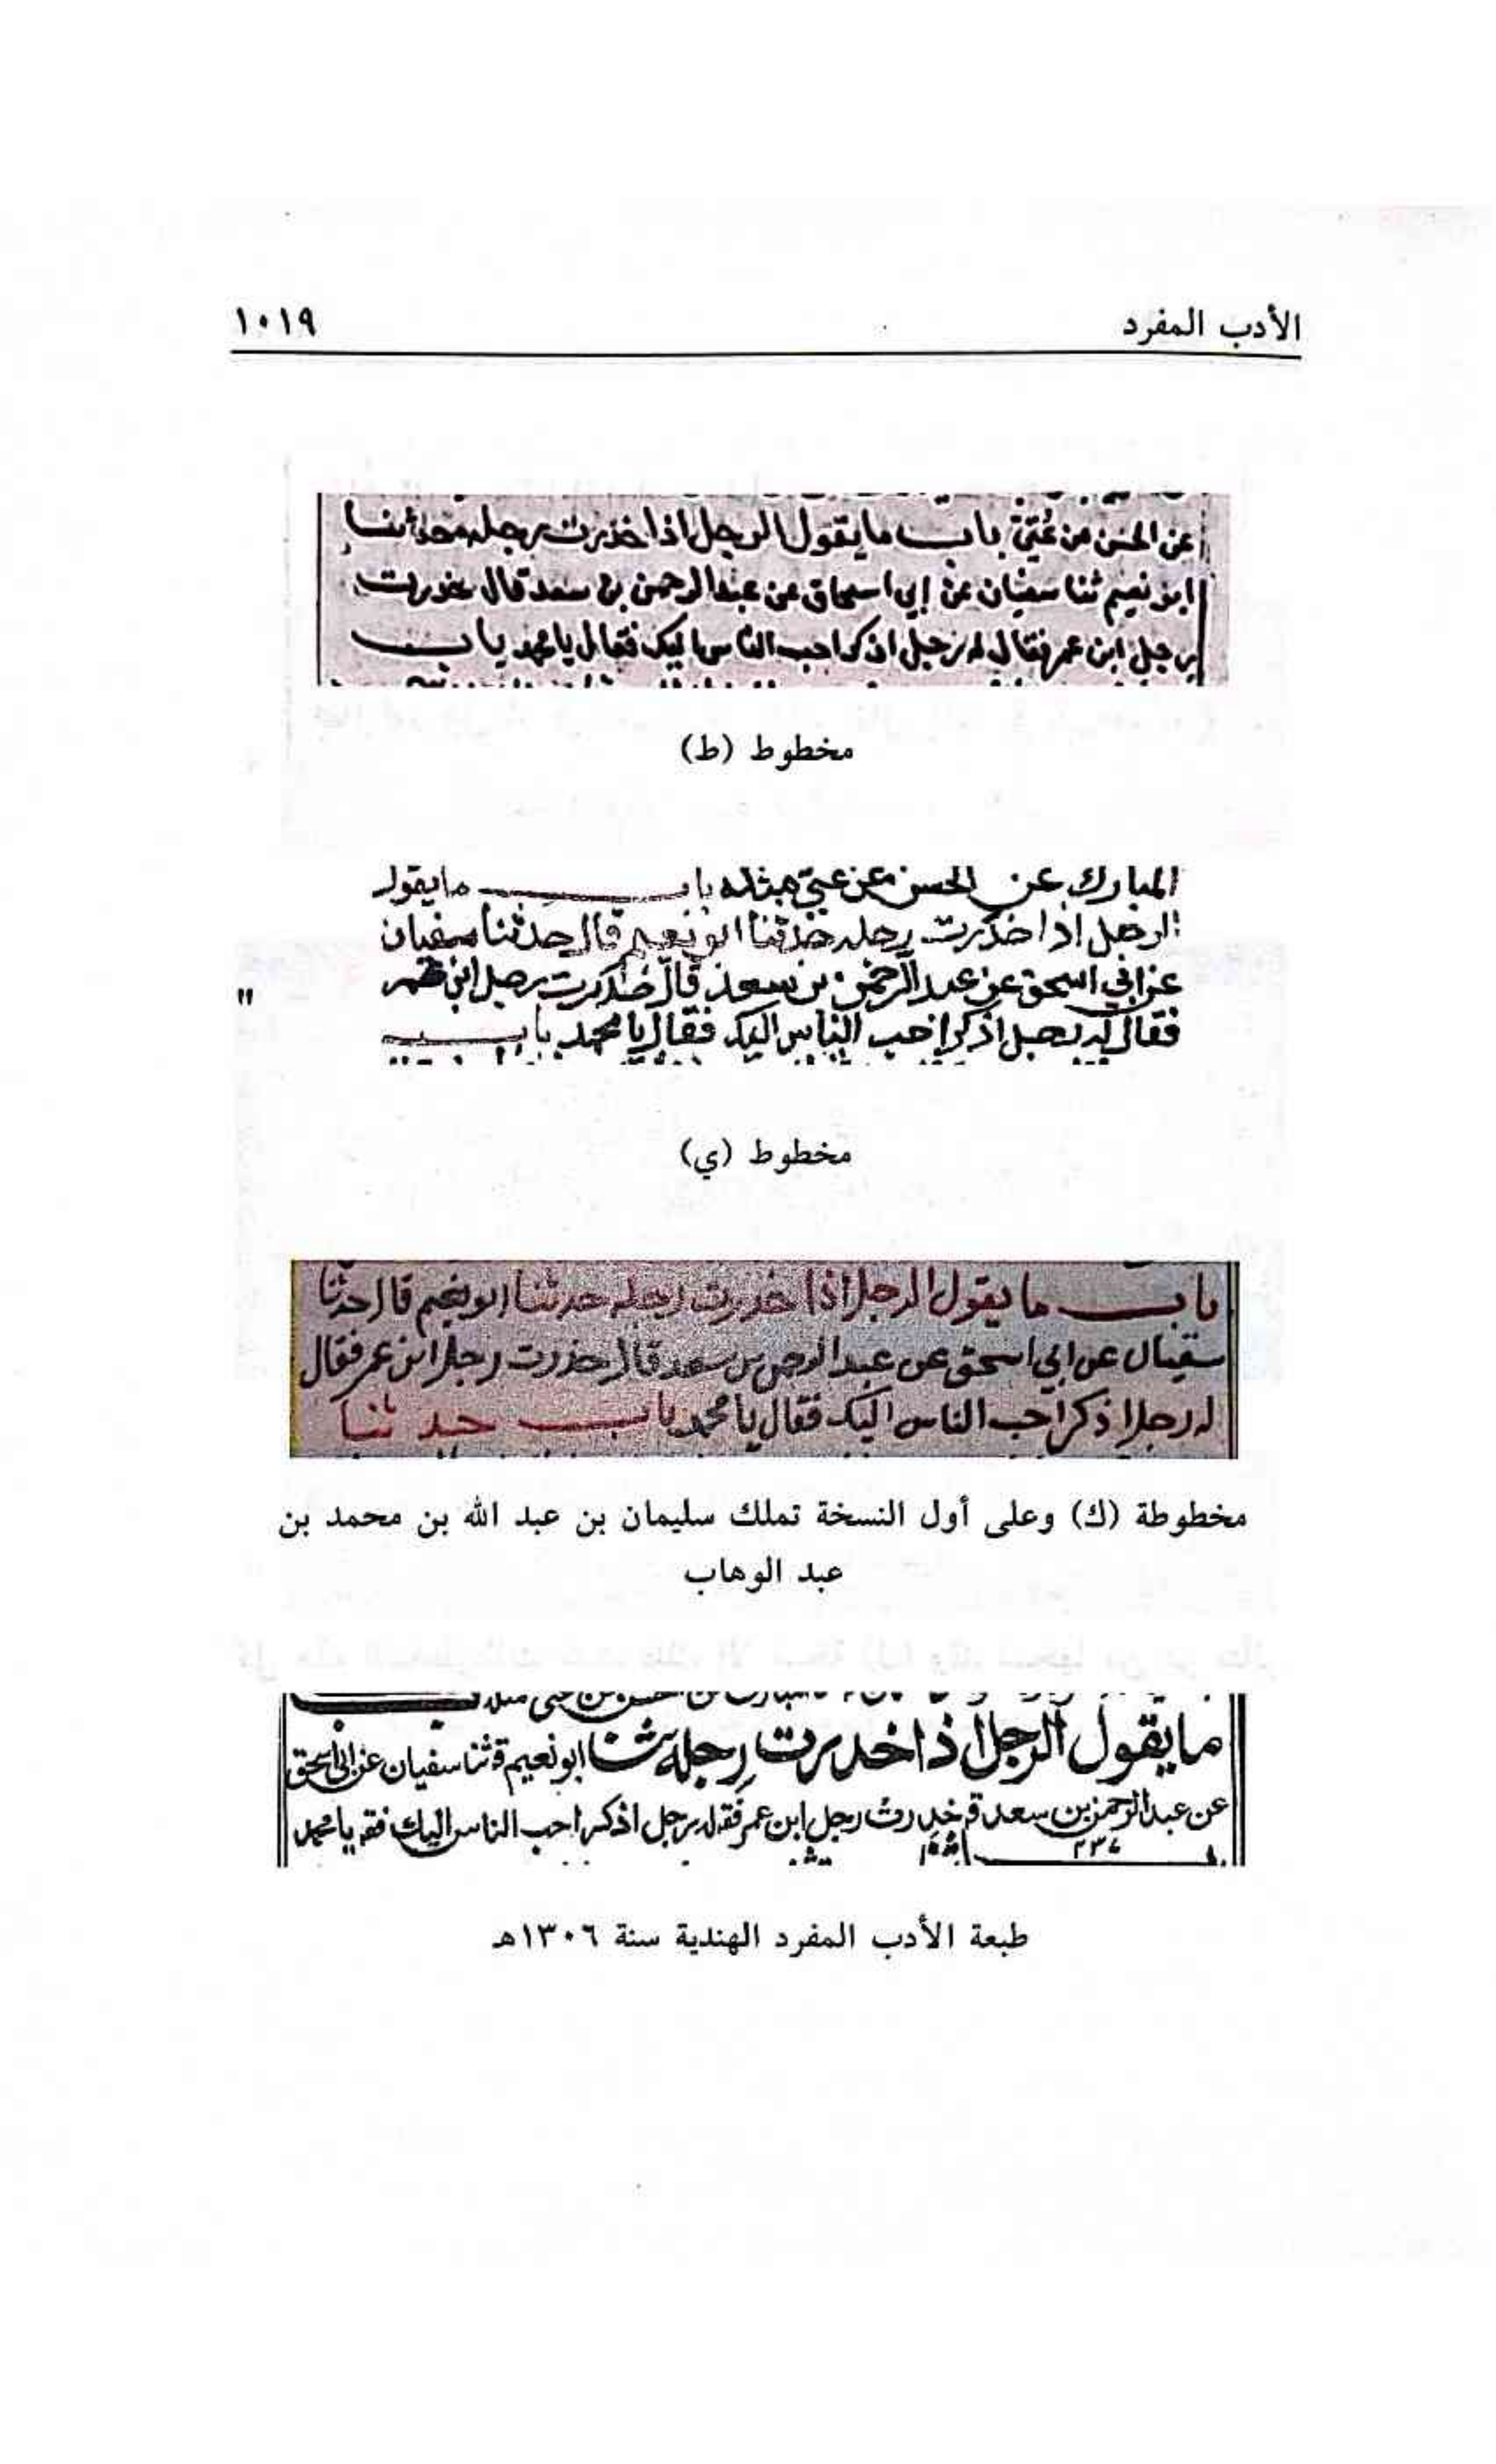 الأدب المفرد ١٠١٩
عن الحسن عن عُتيّ باب ما يقول الرجل اذا خدرت رجله حدثنا
ابو نعيم ثنا سفيان عن إبي اسحاق عن عبد الرحمن بن سعد قال خدرت
رجل ابن عمر فقال له رجل اذكر احب الناس اليك فقال يا محمد باب
مخطوط (ط)
المبارك عن الحسن عن عتي مثله باب ما يقول
الرجل اذا خدرت رجله حدثنا ابو نعيم قال حدثنا سفيان
عن ابي اسحق عن عبد الرحمن بن سعد قال خدرت رجل ابن عمر
فقال له رجل اذكر احب الناس اليك فقال يا محمد باب
مخطوط (ي)
باب ما يقول الرجل اذا خدرت رجله حدثنا ابو نعيم قال حدثنا
سفيان عن ابي اسحق عن عبد الرحمن بن سعد قال خدرت رجل ابن عمر فقال
له رجل اذكر احب الناس اليك فقال يا محمد باب حدثنا
مخطوطة (ك) وعلى أول النسخة تملك سليمان بن عبد الله بن محمد بن
عبد الوهاب
ما يقول الرجل اذا خدرت رجله ثنا ابو نعيم ق ثنا سفيان عن ابي اسحق
عن عبد الرحمن بن سعد ق خدرت رجل ابن عمر فق له رجل اذكر احب الناس اليك فق يا محمد
طبعة الأدب المفرد الهندية سنة ١٣٠٦هـ